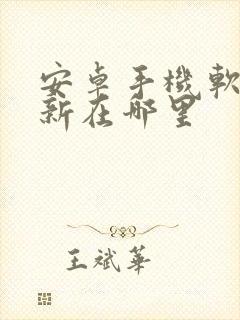 安卓手機軟
新在哪里
王斌華